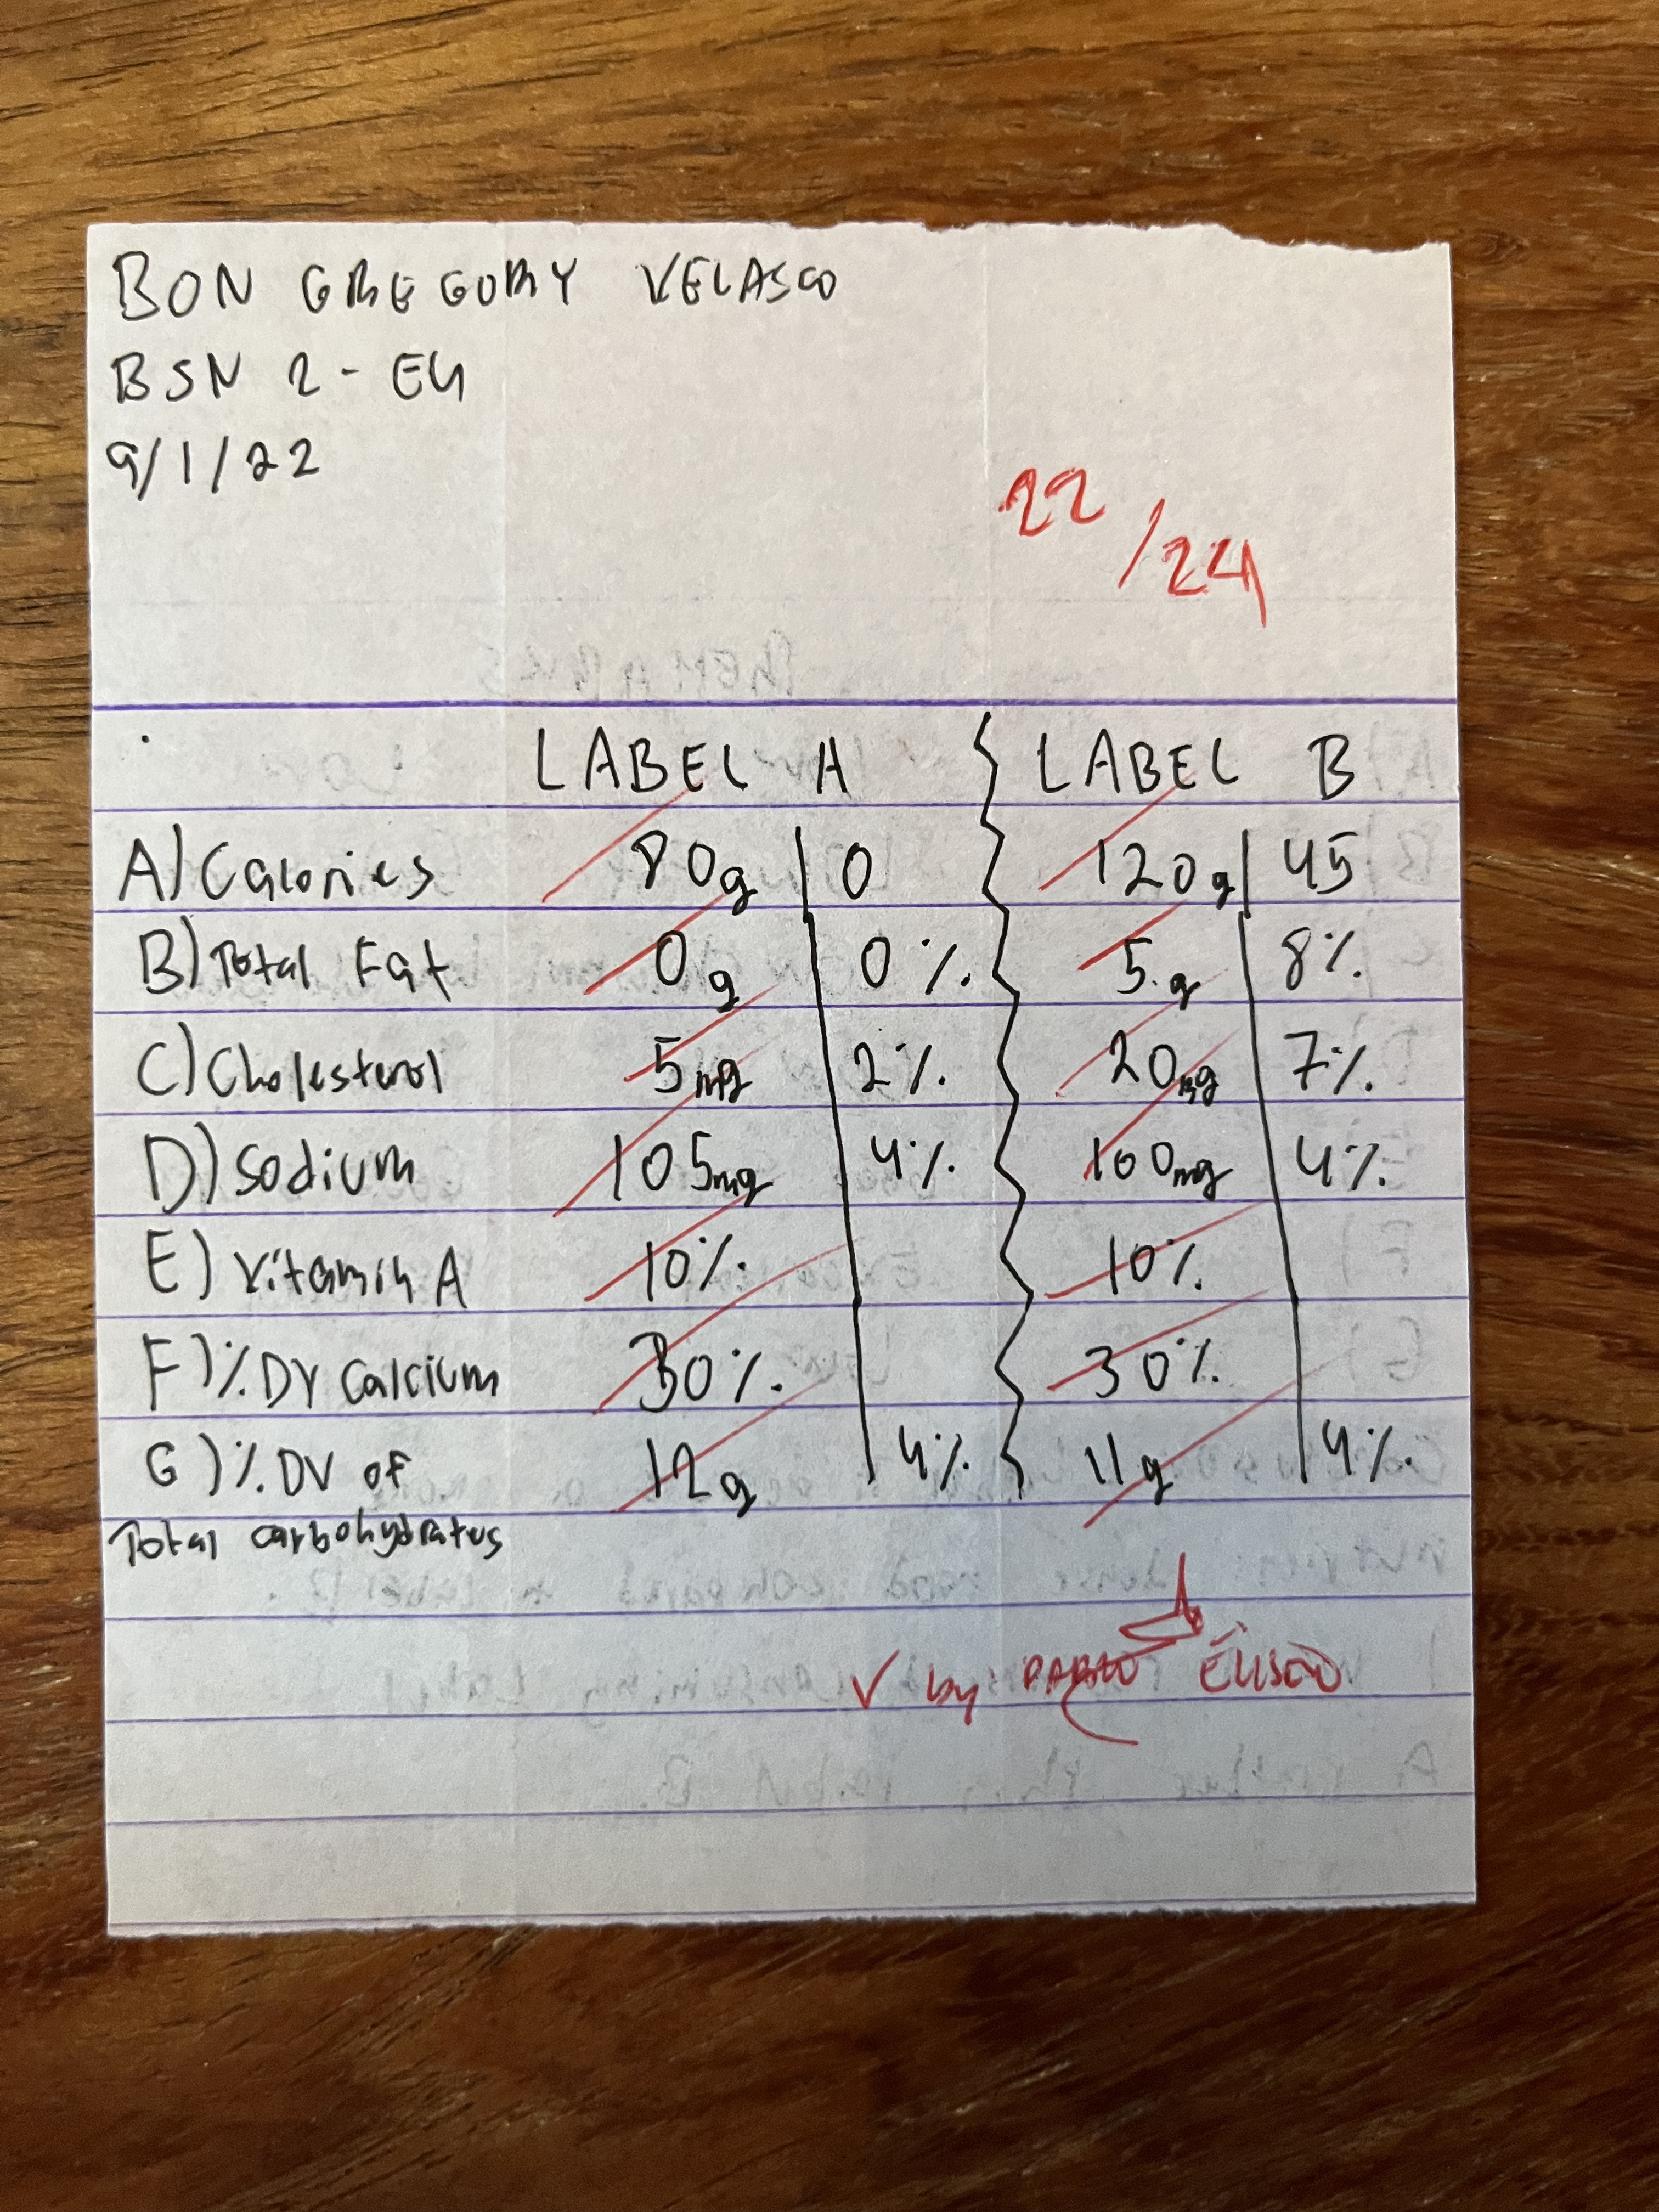 BON GREGORY VELASCO
BSN 2 - E4
9/1/22
22/24
LABEL A LABEL B
A) Calories 80g 0 120g 45
B) Total Fat 0g 0% 5g 8%
C) Cholesterol 5mg 2% 20mg 7%
D) Sodium 105mg 4% 100mg 4%
E) Vitamin A 10% 10%
F) % DV Calcium 30% 30%
G) % DV of 12g 4% 11g 4%
Total carbohydrates
✓ by: PABLO ELISEO